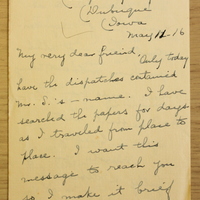 Dubuque
Iowa
May 11 16
My very dear friend,
Only today
have the dispatches contained
Mr. I's — name. I have
searched the papers for days
as I traveled from place to
place. I want this
message to reach you
so I make it brief